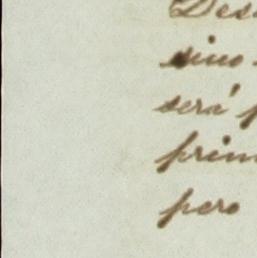 Des
sino
será p
prim
pero